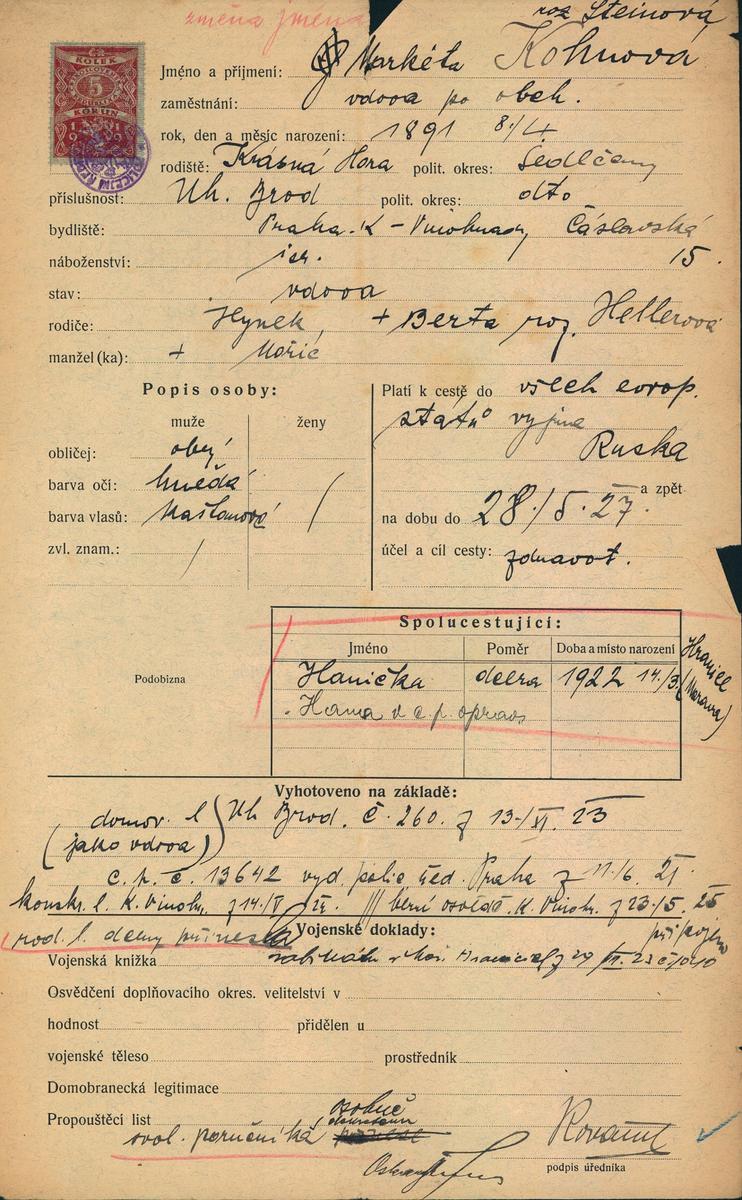 změna jména
roz Steinová
Jméno a příjmení: Markéta Kohnová
zaměstnání: vdova po obch.
rok, den a měsíc narození: 1891 8./4
rodiště: Krásná Hora polit. okres: Sedlčany
příslušnost: Uh. Brod polit. okres: dto
bydliště: Praha-K-Vinohrady Čáslavská
15.
náboženství: isr.
stav: vdova
rodiče: Hynek, + Berta roz. Hellerová
manžel(ka): + Mořic
KOLEK
5
KORUN
Popis osoby:
muže ženy
obličej: obyč
barva očí: hnědá
barva vlasů: kaštanová /
zvl. znam.: /
Platí k cestě do všech evrop.
států vyjma
Ruska
a zpět
na dobu do 28./5. 27.
účel a cíl cesty: zdravot.
Podobizna
Spolucestující:
Jméno Poměr Doba a místo narození
Hanička dcera 1922 14./3. Hranice (Morava)
Hana v c. p. oprav
Vyhotoveno na základě:
domov. l Uh Brod. č. 260. z 13./XI. 23
(jako vdova)
c. p. č. 13642 vyd. polic řed. Praha z 11./6. 21.
konskr. l. K. Vinohr. z 14./V berní osvědč. K. Vinohr. z 23./5. 25
rod. l. dcery přinese
připojen
Vojenské doklady:
Vojenská knížka
Osvědčení doplňovacího okres. velitelství v
hodnost přidělen u
vojenské těleso prostředník
Domobranecká legitimace
Propouštěcí list
svol. poručníka osobně
podpis úředníka